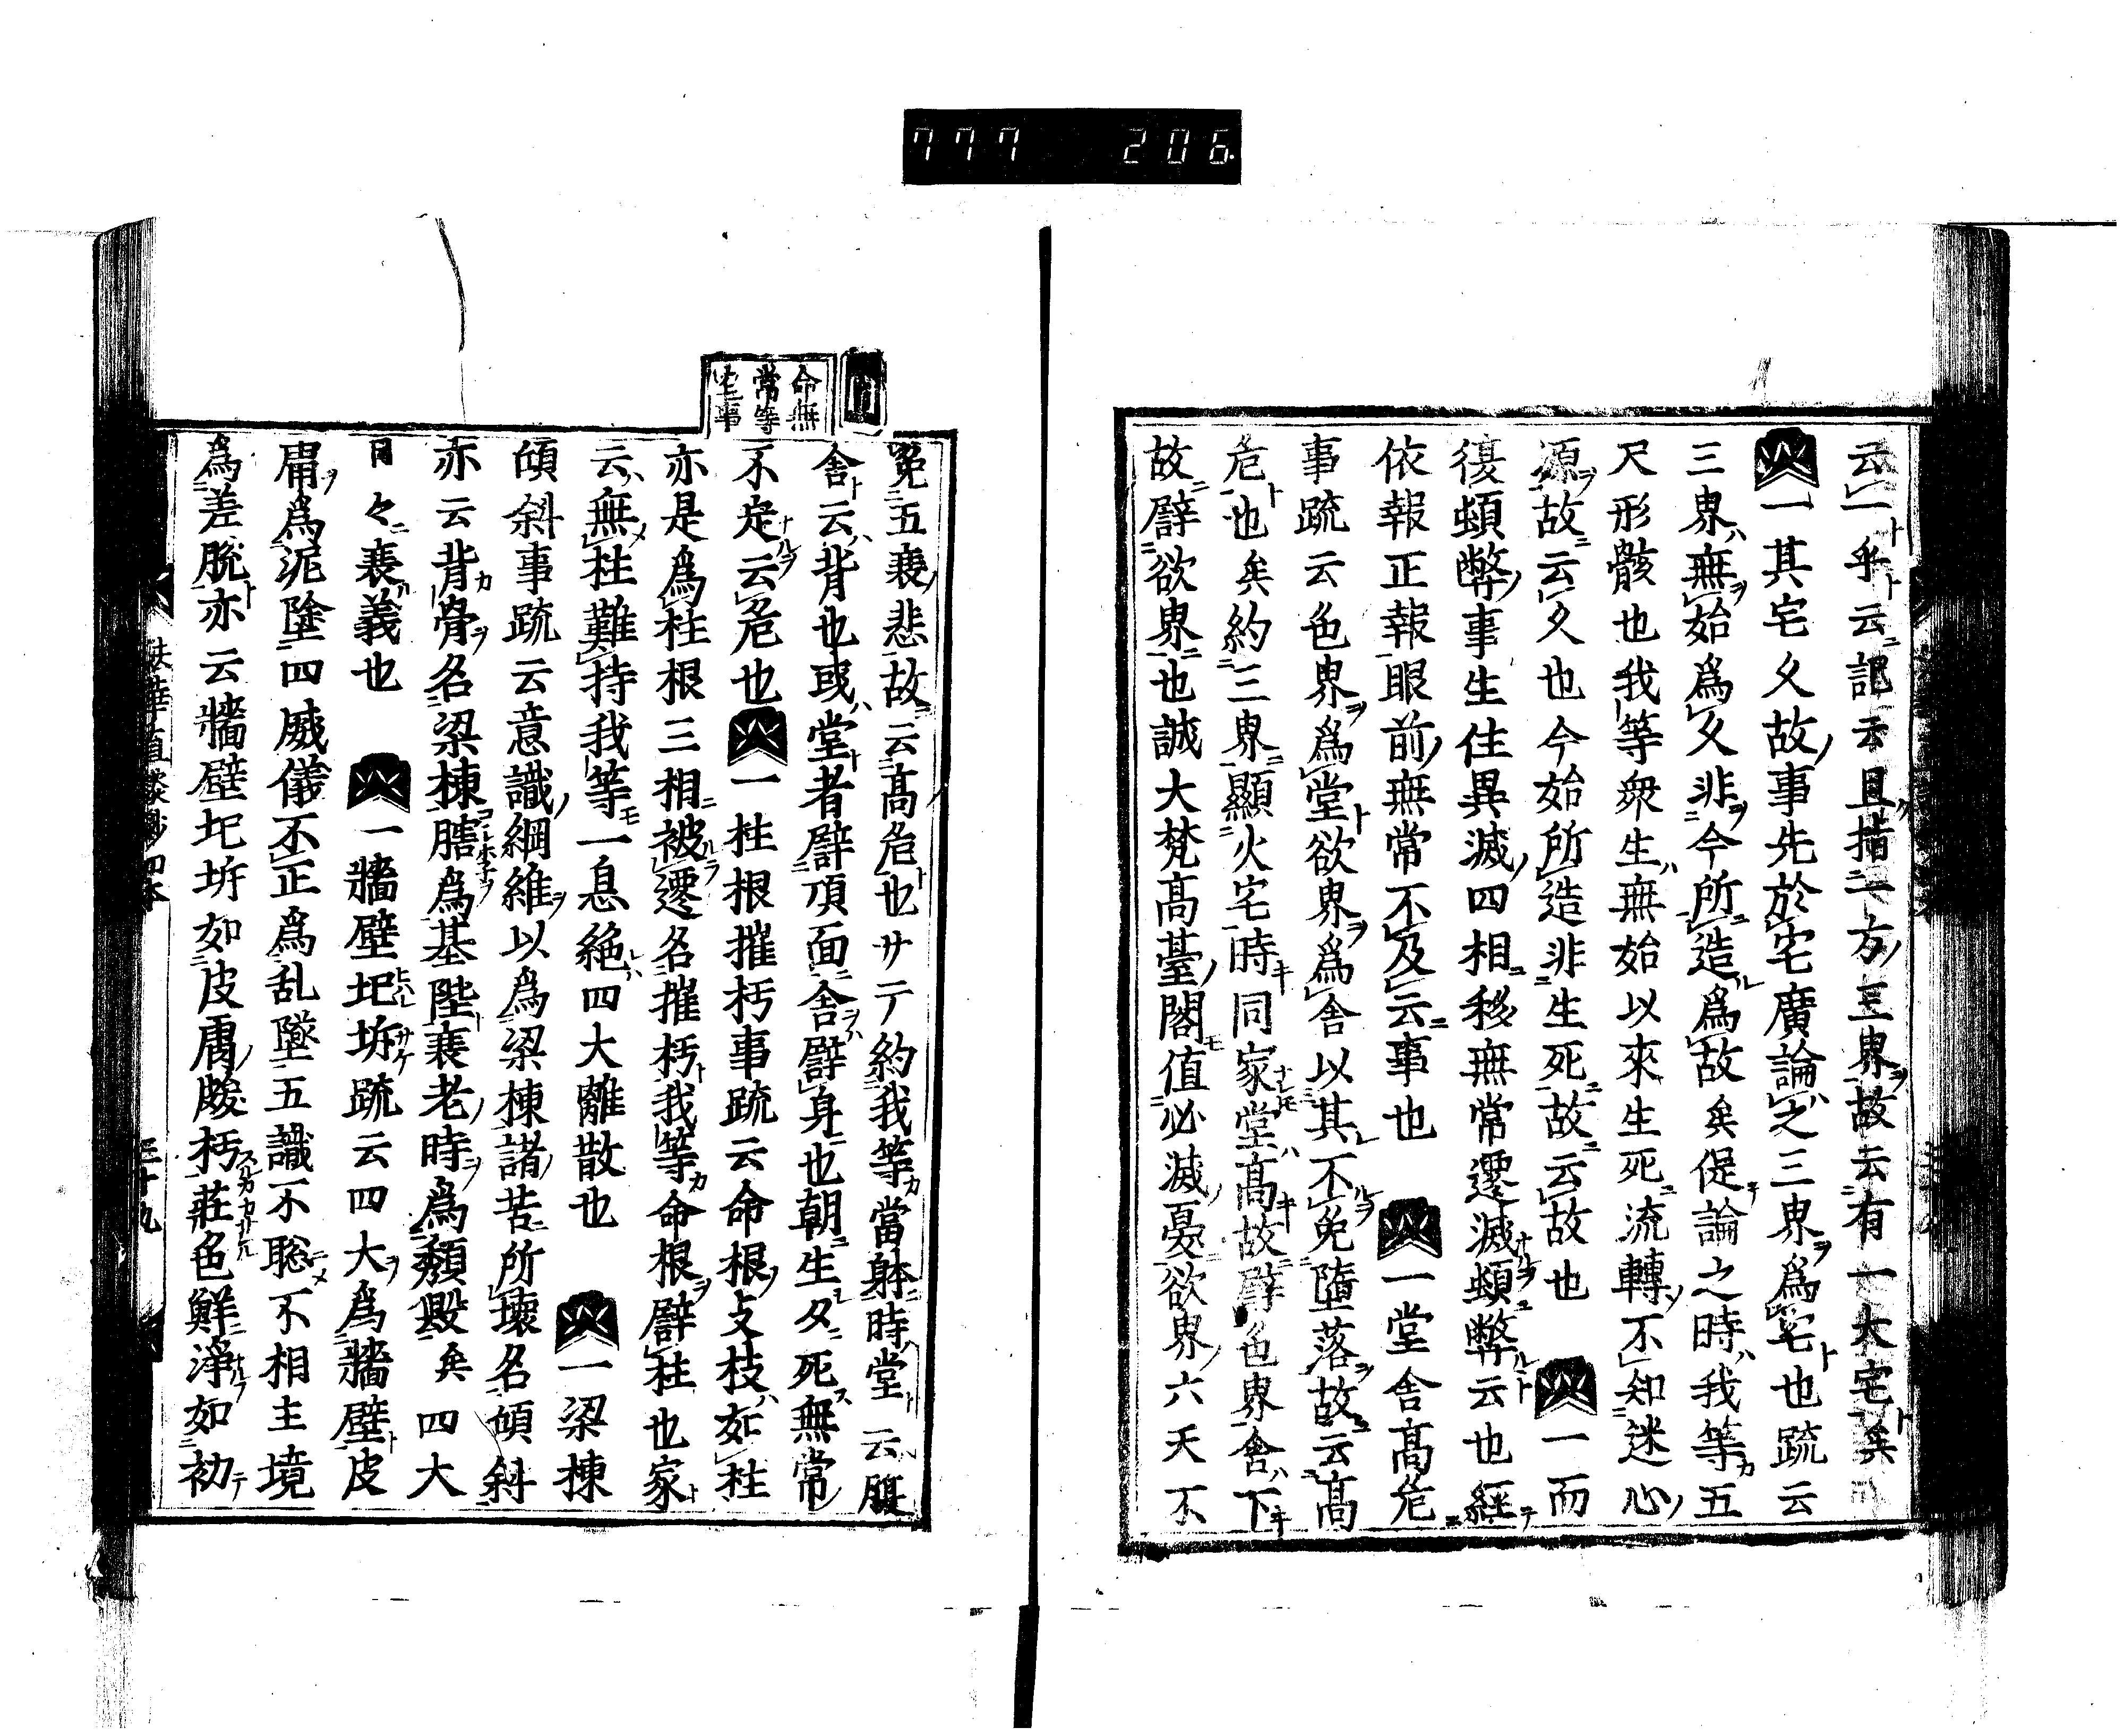 777 206
云一乎云記云且指一方三界故云有一大宅矣
一其宅久故事先於宅廣論之三界為宅也疏云
三界無始為久非今所造為故矣促論之時我等五
尺形骸也我等衆生無始以來生死流轉不知迷心
源故云久也今始所造非生死故云故也 一而
復頓弊事生住異滅四相移無常遷滅頓弊云也經
依報正報眼前無常不及云事也 一堂舍高危
事疏云色界為堂欲界為舍以其不免墮落故云高
危也矣約三界顯火宅時同家堂高故譬色界舍下
故譬欲界也誠大梵高臺閣值必滅憂欲界六天不
免五衰悲故云高危也サテ約我等當躰時堂云腹
舍云背也或堂者譬項面舍譬身也朝生夕死無常
不定云危也 一柱根摧朽事疏云命根支枝如柱
亦是為柱根三相被遷名摧朽我等命根譬柱也家
云無柱難持我等一息絶四大離散也 一梁棟
傾斜事疏云意識綱維以為梁棟諸苦所壞名傾斜
亦云背骨名梁棟䏶為基陛衰老時為頽毀矣四大
日々衰義也 一牆壁圮坼疏云四大為牆壁皮
膚為泥塗四威儀不正為乱墜五識不聡不相主境
為差脱亦云牆壁圮坼如皮膚皴朽莊色鮮淨如初
命無
常等
宅事
法華直談鈔四本
三十九